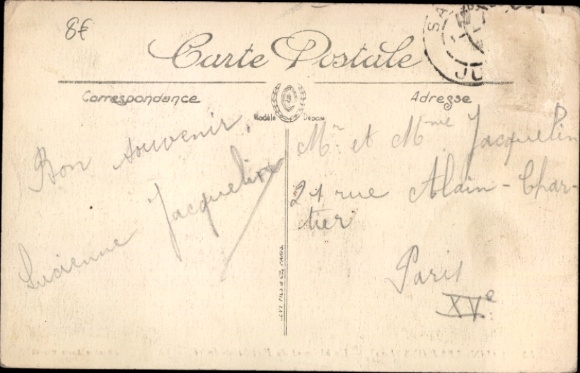 8€
Carte Postale
Correspondance
Adresse
Modèle Déposé
Bon souvenir,
Lucienne Jacqueline
Mr et Mme Jacquelin
21 rue Alain-Char-
tier
Paris
XVe